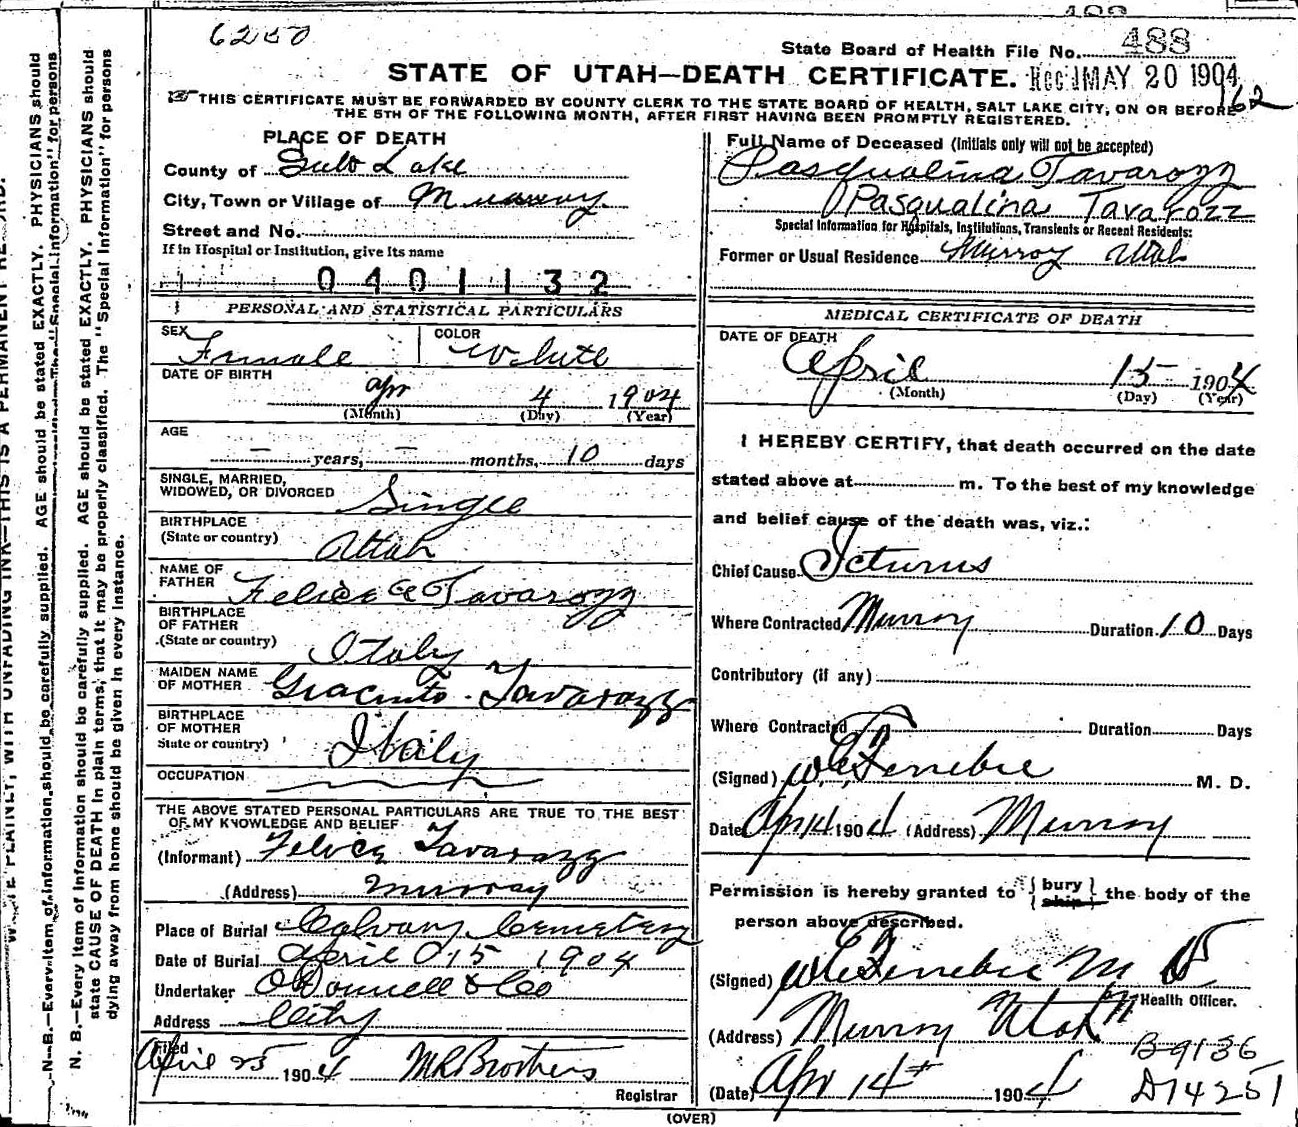 488
6250
State Board of Health File No. 488
STATE OF UTAH—DEATH CERTIFICATE. Rec'd MAY 20 1904
62
THIS CERTIFICATE MUST BE FORWARDED BY COUNTY CLERK TO THE STATE BOARD OF HEALTH, SALT LAKE CITY, ON OR BEFORE
THE 5TH OF THE FOLLOWING MONTH, AFTER FIRST HAVING BEEN PROMPTLY REGISTERED.
PLACE OF DEATH
County of Salt Lake
City, Town or Village of Murray
Street and No.
If in Hospital or Institution, give its name
0401132
PERSONAL AND STATISTICAL PARTICULARS
SEX Female COLOR White
DATE OF BIRTH
Apr 4 1904
(Month) (Day) (Year)
AGE
— years, — months, 10 days
SINGLE, MARRIED,
WIDOWED, OR DIVORCED Single
BIRTHPLACE
(State or country) Utah
NAME OF
FATHER Felice Tavarozz
BIRTHPLACE
OF FATHER
(State or country) Italy
MAIDEN NAME
OF MOTHER Giacinto Tavarozz
BIRTHPLACE
OF MOTHER
State or country) Italy
OCCUPATION
THE ABOVE STATED PERSONAL PARTICULARS ARE TRUE TO THE BEST
OF MY KNOWLEDGE AND BELIEF
(Informant) Felice Tavarozz
(Address) Murray
Place of Burial Calvary Cemetery
Date of Burial April 15 1904
Undertaker O'Donnell & Co
Address City
Filed
April 25 1904 M R Brothers
Registrar
Full Name of Deceased (Initials only will not be accepted)
Pasqualina Tavarozz
Pasqualina Tavarozz
Special Information for Hospitals, Institutions, Transients or Recent Residents:
Former or Usual Residence Murray Utah
MEDICAL CERTIFICATE OF DEATH
DATE OF DEATH
April 15 1904
(Month) (Day) (Year)
I HEREBY CERTIFY, that death occurred on the date
stated above at m. To the best of my knowledge
and belief cause of the death was, viz.:
Chief Cause Icturus
Where Contracted Murray Duration 10 Days
Contributory (if any)
Where Contracted Duration Days
(Signed) M. D.
Date Apr 14 1904 (Address) Murray
Permission is hereby granted to { bury } the body of the
{ ship }
person above described.
(Signed) M D
Health Officer.
(Address) Murray Utah
B9136
(Date) Apr 14th 1904
D14251
(OVER)
N. B.—Every item of information should be carefully supplied. AGE should be stated EXACTLY. PHYSICIANS should
state CAUSE OF DEATH in plain terms, that it may be properly classified. The "Special Information" for persons
dying away from home should be given in every instance.
N. B.—Every item of information should be carefully supplied. AGE should be stated EXACTLY. PHYSICIANS should
The "Special Information" for persons
PLAINLY, WITH UNFADING INK—THIS IS A PERMANENT